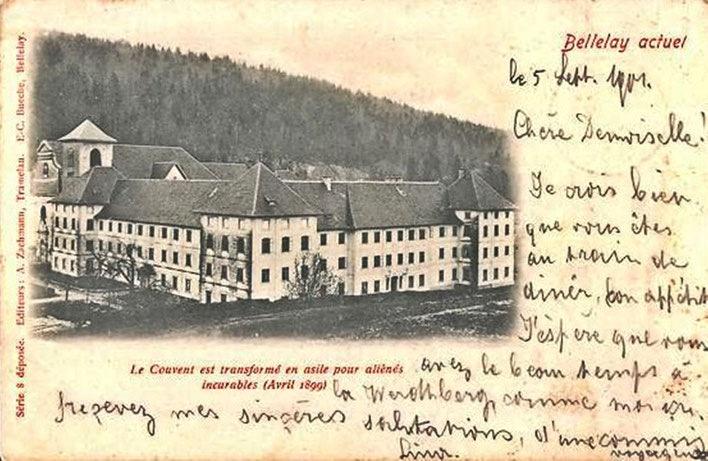 Bellelay actuel
le 5 Sept. 1901.
Chère Demoiselle!
Je crois bien
que vous êtes
au train de
diner, bon appétit
J'espère que vous
avez le beau temps à
la Werdtberg, comme moi ici.
reçevez mes sincères salutations, d'une commis
voyageuse
Le Couvent est transformé en asile pour aliénés
incurables (Avril 1899)
Série 8 déposée. Editeurs: A. Zachmann, Tramelan. E.-C. Bueche, Bellelay.